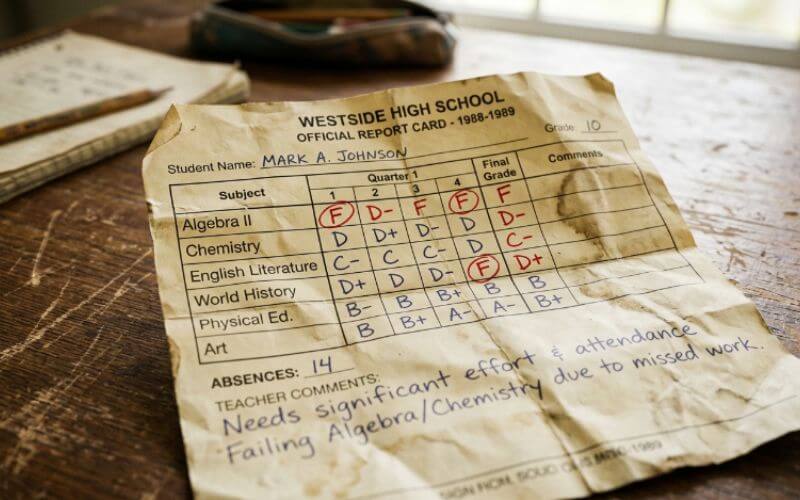 WESTSIDE HIGH SCHOOL
OFFICIAL REPORT CARD - 1988-1989
Student Name: MARK A. JOHNSON Grade: 10
Subject Quarter 1 Final Grade Comments
1 2 3 4
Algebra II F D- F F F
Chemistry D D+ D- D D-
English Literature C- C C- D C-
World History D+ D D- F D+
Physical Ed. B- B B+ B B
Art B B+ A- A- B+
ABSENCES: 14
TEACHER COMMENTS:
Needs significant effort & attendance
Failing Algebra/Chemistry due to missed work.